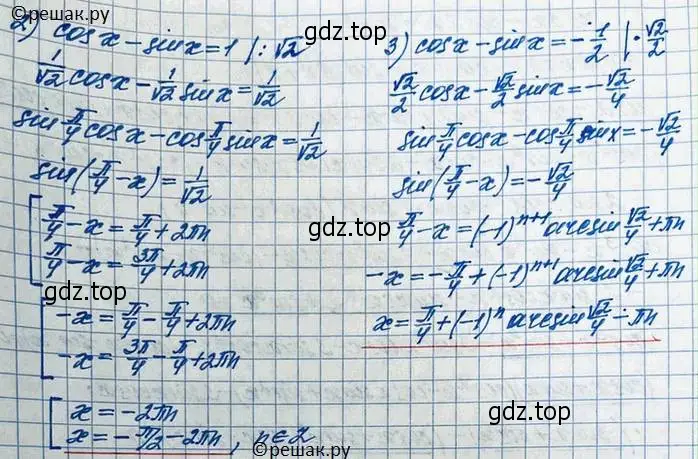 ©решак.ру
2) cos x − sin x = 1 | : √2
1/√2 cos x − 1/√2 sin x = 1/√2
sin π/4 cos x − cos π/4 sin x = 1/√2
sin(π/4 − x) = 1/√2
[ π/4 − x = π/4 + 2πn
π/4 − x = 3π/4 + 2πn
gdz.top
[ −x = π/4 − π/4 + 2πn
−x = 3π/4 − π/4 + 2πn
[ x = −2πn
x = −π/2 − 2πn, n ∈ Z
©решак.ру
gdz.top
3) cos x − sin x = −1/2 | · √2/2
√2/2 cos x − √2/2 sin x = −√2/4
sin π/4 cos x − cos π/4 sin x = −√2/4
sin(π/4 − x) = −√2/4
gdz.top
π/4 − x = (−1)ⁿ⁺¹ arcsin √2/4 + πn
−x = −π/4 + (−1)ⁿ⁺¹ arcsin √2/4 + πn
x = π/4 + (−1)ⁿ arcsin √2/4 − πn
gdz.top